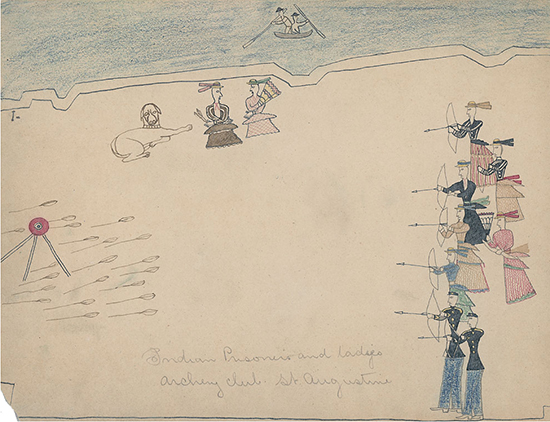 1-
Indian Prisoners and ladies
archery club. St. Augustine